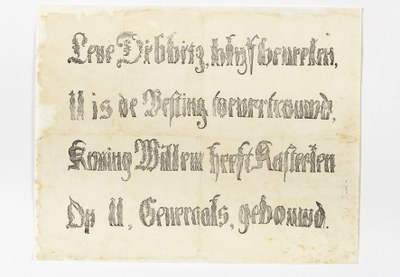 Leve Dibbitz, blijf bevelen,
U is de Vesting toevertrouwd,
Koning Willem heeft Kasteelen
Op U, Generaals, gebouwd.